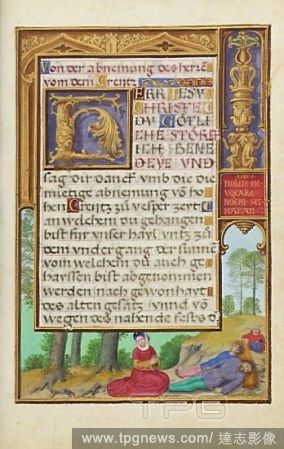 Von der abnemung des herrē
vom dem Creütz
HERR IESV
CHRISTE
DV GÖTL
ICHE STÖRF
ICH BENE
DEYE VND
sag dir danck vmb die die
mietige abnemung võ ho
hen Creütz zu vesper zeyt
an welchem du gehangen
bist für vnser hayl vntz zu
dem vndergang der sunne
vom welchem du auch ge
hayssen bist abgenommen
werden nach gewonhayt
des alten gesätz vnnd võ
wegen des nahende fests d
NOLITE ME
VOCARE
NOEMI SET
MARAM
TPG
www.tpgnews.com/達志影像